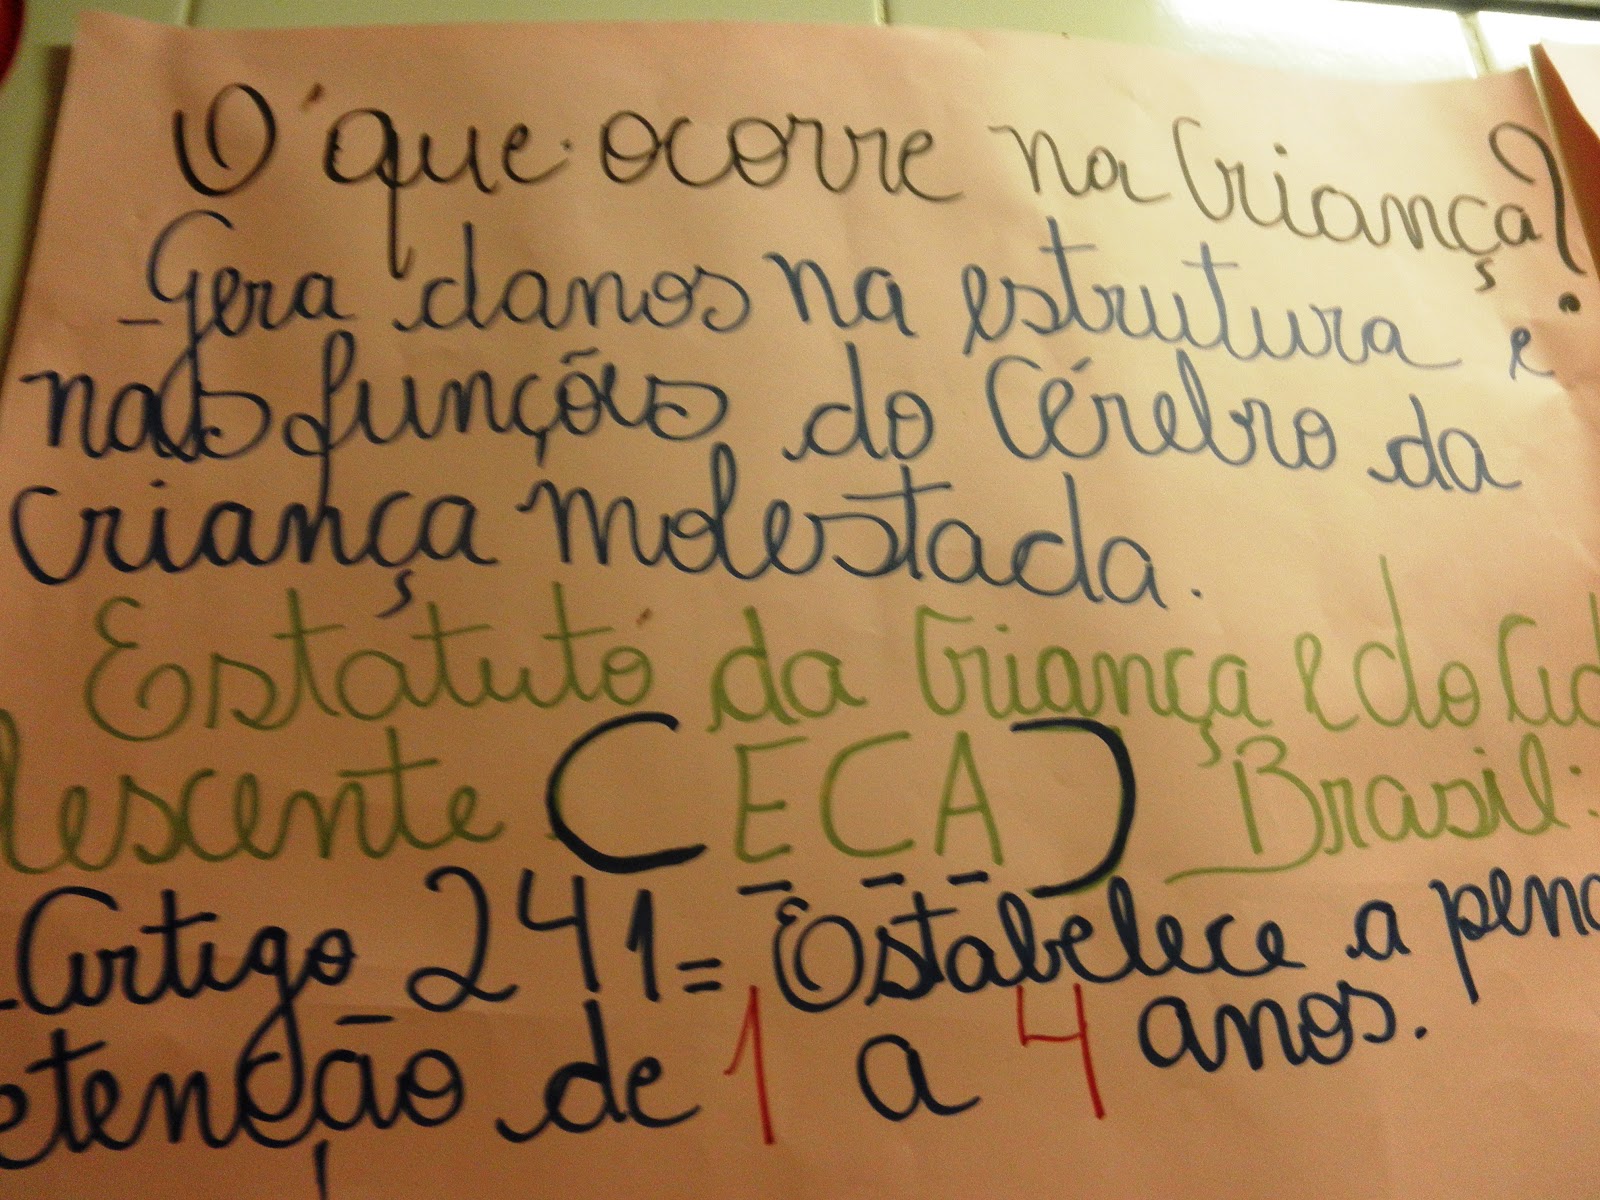 O que ocorre na Criança?
- Gera danos na estrutura e
nas funções do Cérebro da
Criança molestada.
Estatuto da Criança e do Ado
lescente (ECA) Brasil:
- Artigo 241 = Estabelece a pena
etenção de 1 a 4 anos.